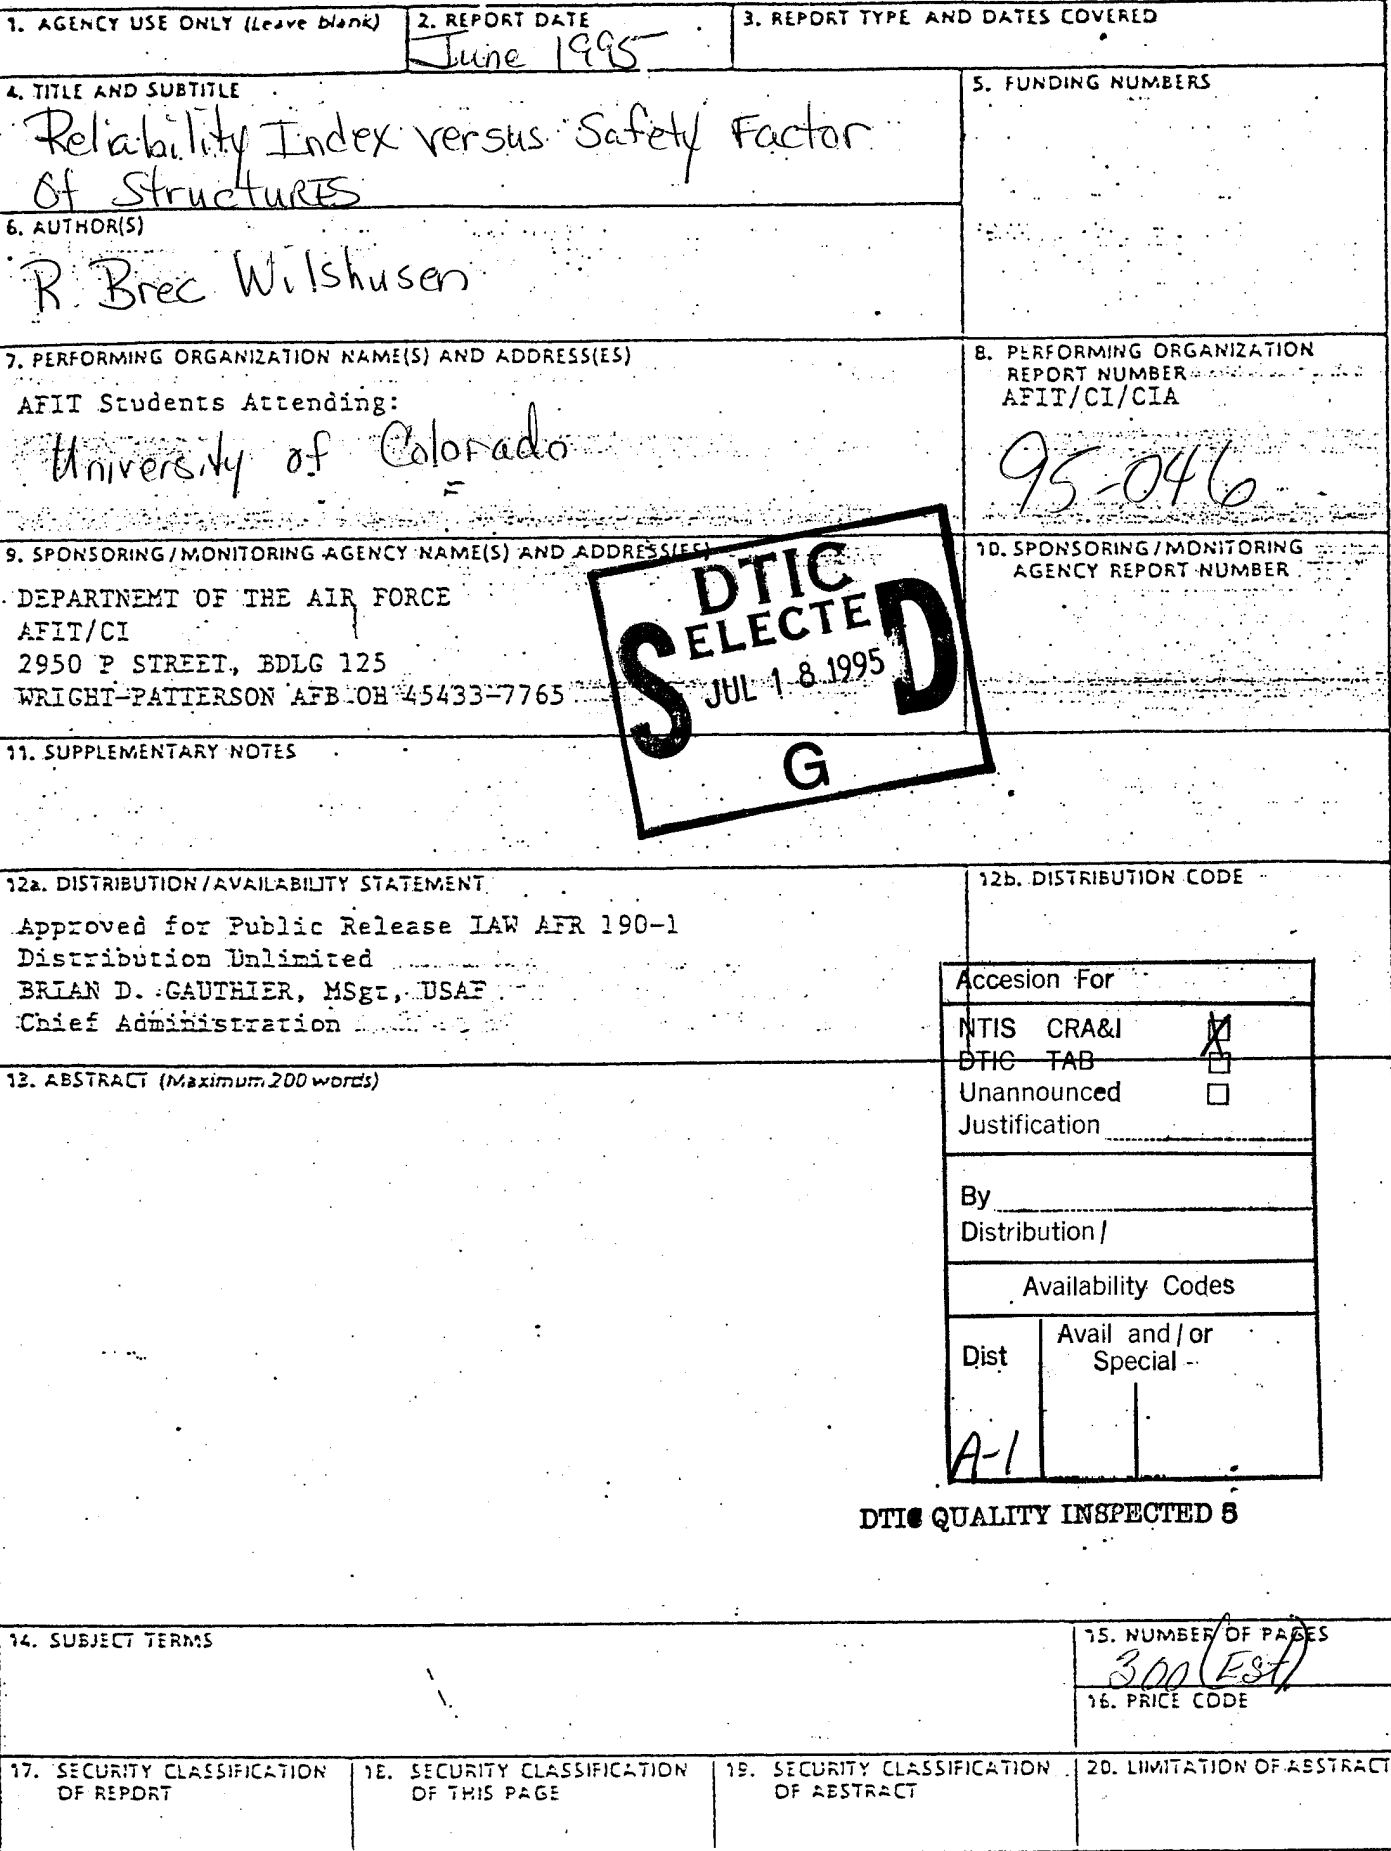 1. AGENCY USE ONLY (Leave blank)
2. REPORT DATE
June 1995
3. REPORT TYPE AND DATES COVERED
4. TITLE AND SUBTITLE
Reliability Index versus Safety Factor
Of StructuRES
5. FUNDING NUMBERS
6. AUTHOR(S)
R. Brec Wilshusen
7. PERFORMING ORGANIZATION NAME(S) AND ADDRESS(ES)
AFIT Students Attending:
University of Colorado
8. PERFORMING ORGANIZATION
REPORT NUMBER
AFIT/CI/CIA
95-046
9. SPONSORING/MONITORING AGENCY NAME(S) AND ADDRESS(ES)
DEPARTNEMT OF THE AIR FORCE
AFIT/CI
2950 P STREET, BDLG 125
WRIGHT-PATTERSON AFB OH 45433-7765
DTIC
S ELECTE D
JUL 18 1995
G
10. SPONSORING/MONITORING
AGENCY REPORT NUMBER
11. SUPPLEMENTARY NOTES
12a. DISTRIBUTION/AVAILABILITY STATEMENT
Approved for Public Release IAW AFR 190-1
Distribution Unlimited
BRIAN D. GAUTHIER, MSgt, USAF
Chief Administration
12b. DISTRIBUTION CODE
13. ABSTRACT (Maximum 200 words)
Accesion For
NTIS CRA&I
DTIC TAB
Unannounced
Justification
By
Distribution /
Availability Codes
Dist
Avail and / or
Special
A-1
DTIC QUALITY INSPECTED 5
14. SUBJECT TERMS
15. NUMBER OF PAGES
300 (Est)
16. PRICE CODE
17. SECURITY CLASSIFICATION
OF REPORT
18. SECURITY CLASSIFICATION
OF THIS PAGE
19. SECURITY CLASSIFICATION
OF ABSTRACT
20. LIMITATION OF ABSTRACT